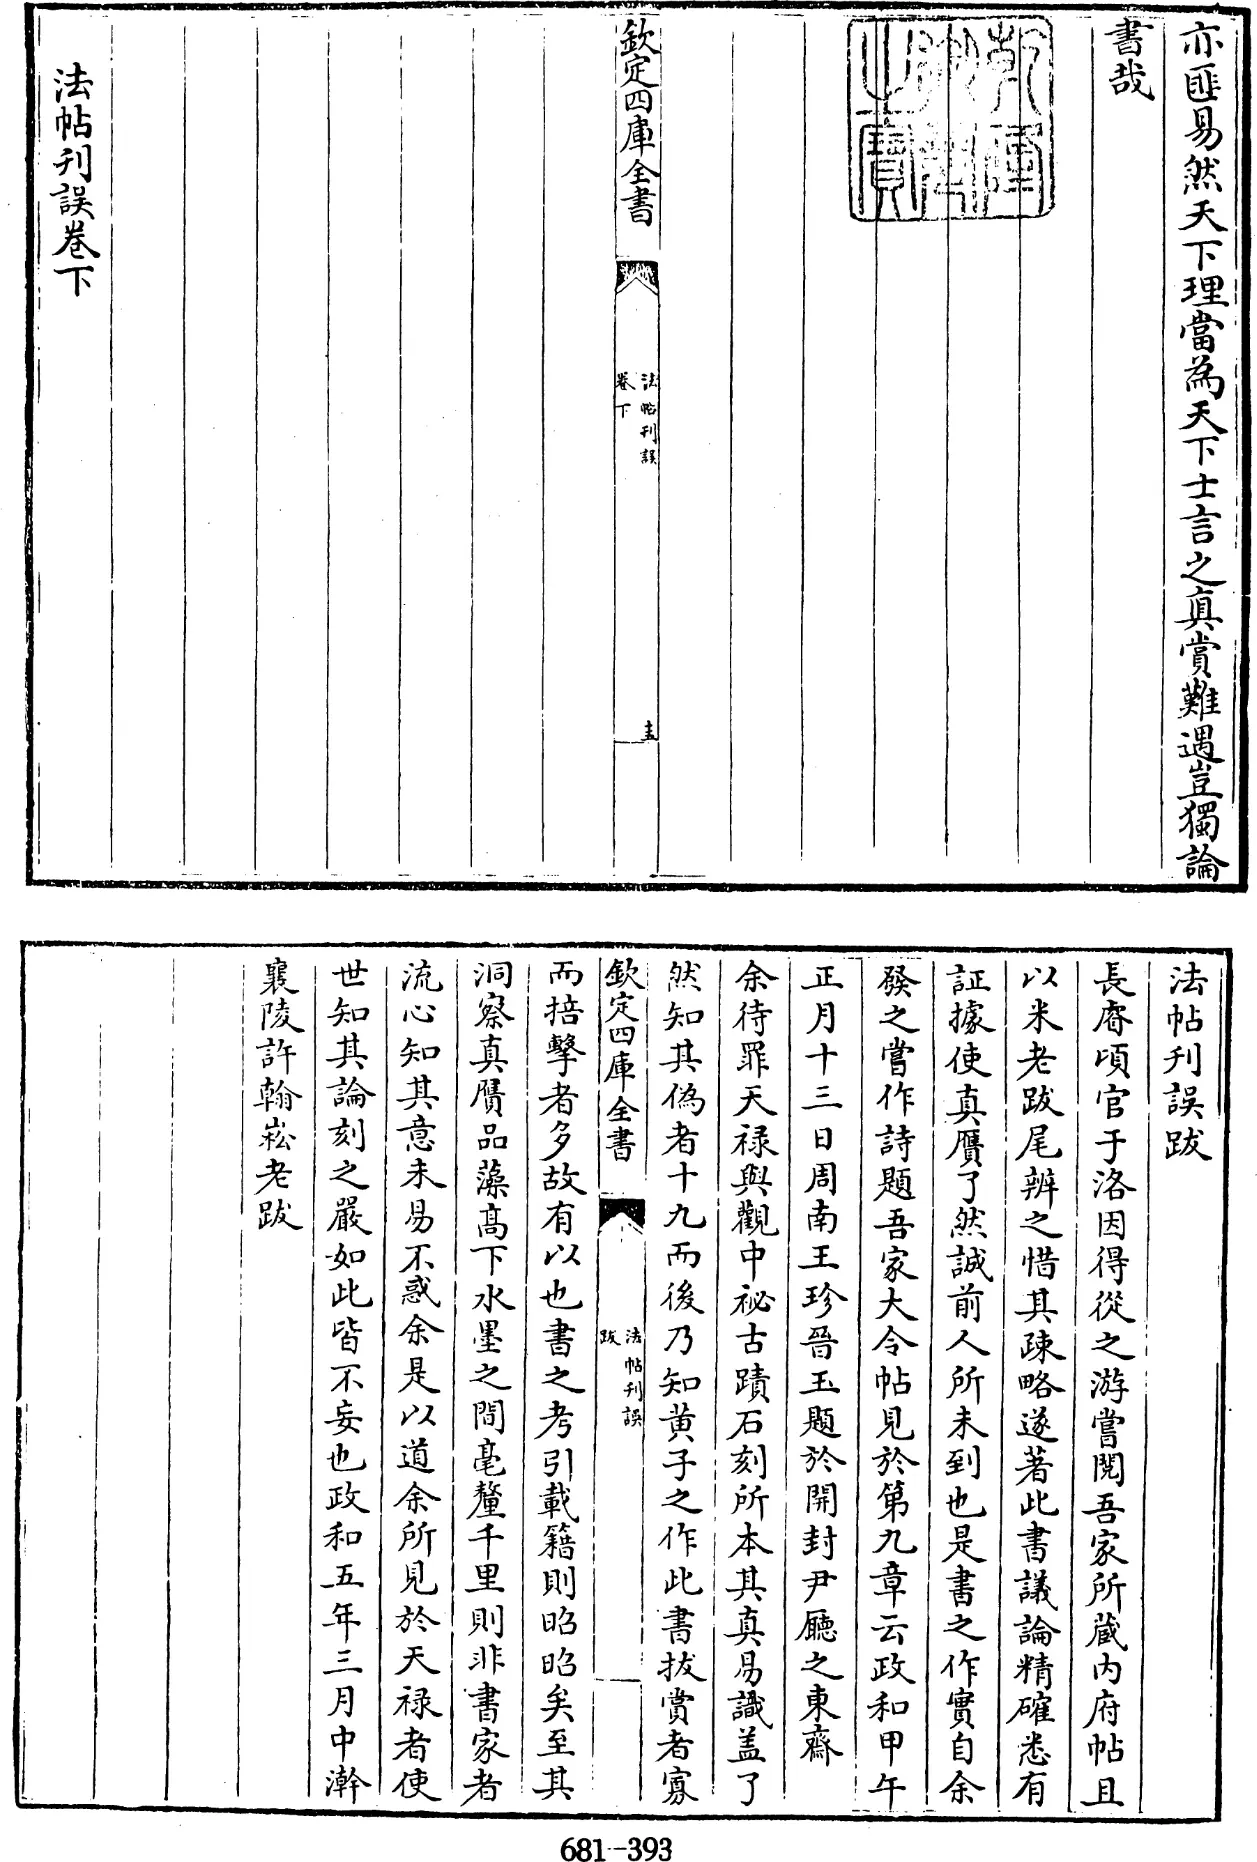 亦匪易然天下理當為天下士言之真賞難遇豈獨論
書哉
乾隆御覽之寶
欽定四庫全書
法帖刊誤
卷下
法帖刊誤卷下
法帖刊誤跋
長睿頃官于洛因得從之游嘗閱吾家所藏内府帖且
以米老跋尾辨之惜其疎略遂著此書議論精確悉有
証據使真贋了然誠前人所未到也是書之作實自余
發之嘗作詩題吾家大令帖見於第九章云政和甲午
正月十三日周南王珍晉玉題於開封尹廳之東齋
余待罪天祿與觀中祕古蹟石刻所本其真易識盖了
然知其偽者十九而後乃知黄子之作此書拔賞者寡
欽定四庫全書
法帖刊誤
跋
而掊擊者多故有以也書之考引載籍則昭昭矣至其
洞察真贋品藻高下水墨之間毫釐千里則非書家者
流心知其意未易不惑余是以道余所見於天祿者使
世知其論刻之嚴如此皆不妄也政和五年三月中澣
襄陵許翰崧老跋
681-393